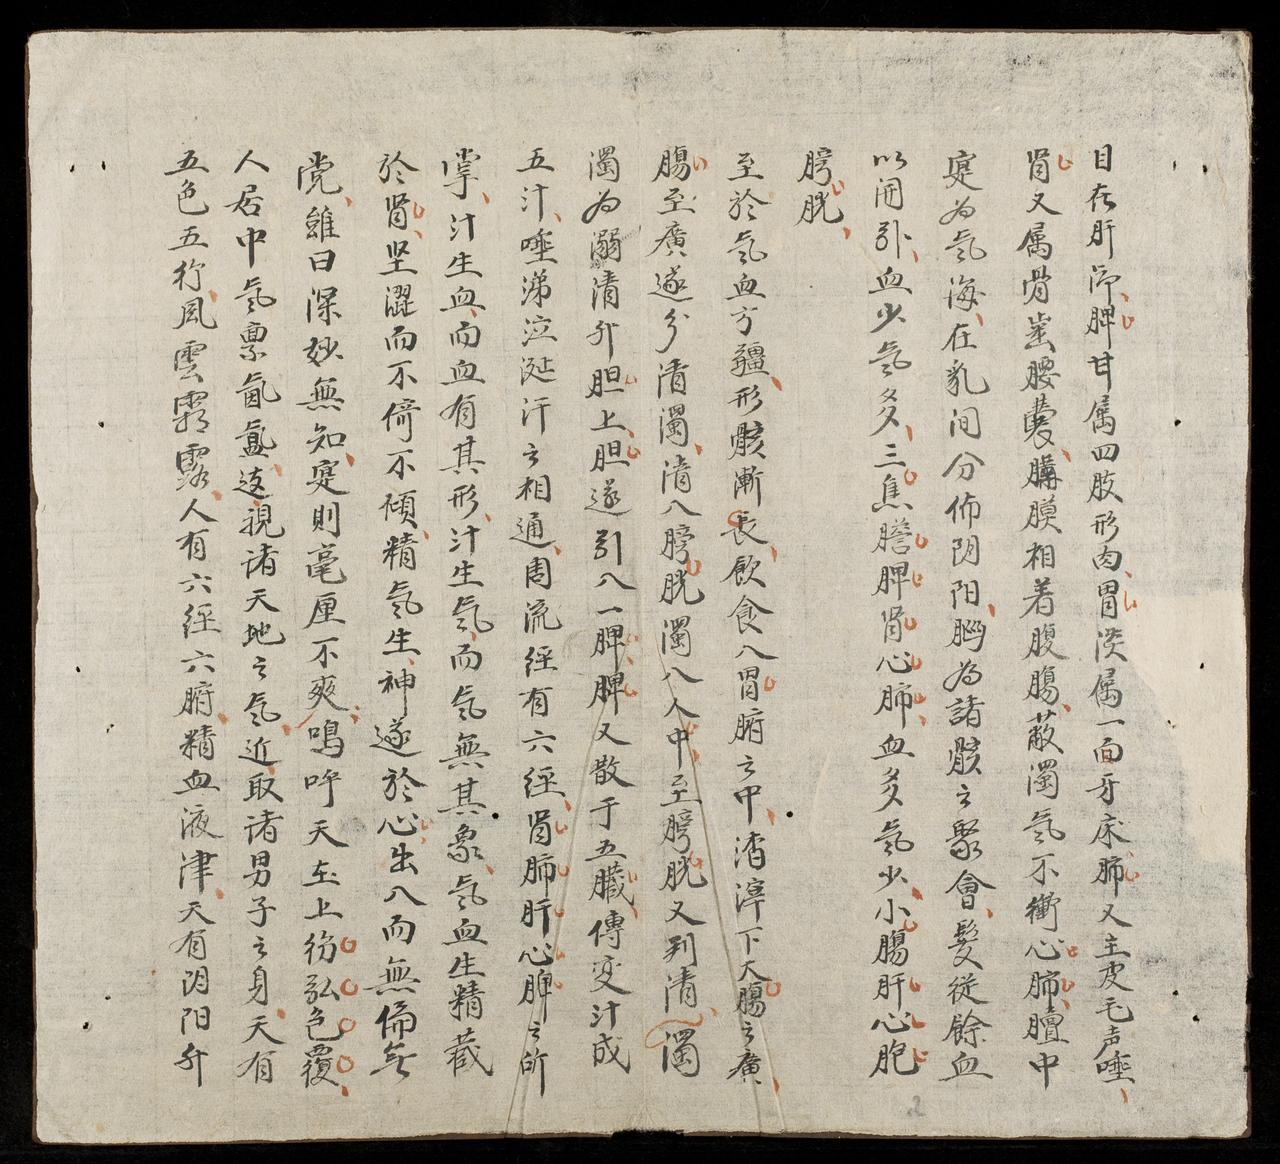 目在肝沛脾甘属四肢形肉胃淡属一面牙床肺又主皮毛声唾
肾又属骨峚腰䕫膦膜相着腹腸蔽濁氣不衝心肺膻中
寔为氣海在乳间分佈阴阳腦为諸骸之聚會髮從餘血
以開引血少氣多三焦膽脾肾心肺血多氣少小腸肝心胞
膀胱
至於氣血方疆形骸漸長飲食入胃腑之中渣滓下大腸之廣
腸至廣遂分清濁清入膀胱濁入人中至膀胱又列清濁
濁为溺清升胆上胆遂引入一脾脾又散于五臟傳变汁成
五汁唾涕泣涎汗之相通周流經有六經肾肺肝心脾之所
掌汁生血而血有其形汁生氣而氣無其象氣血生精藏
於肾坚澀而不倚不傾精氣生神遂於心出入而無偏無
党雖曰深妙無知寔則毫厘不爽嗚呼天在上彷弘色覆
人居中氣禀氤氲遠視诸天地之氣近取诸男子之身天有
五色五行風雲霜露人有六經六腑精血液津天有阴阳升